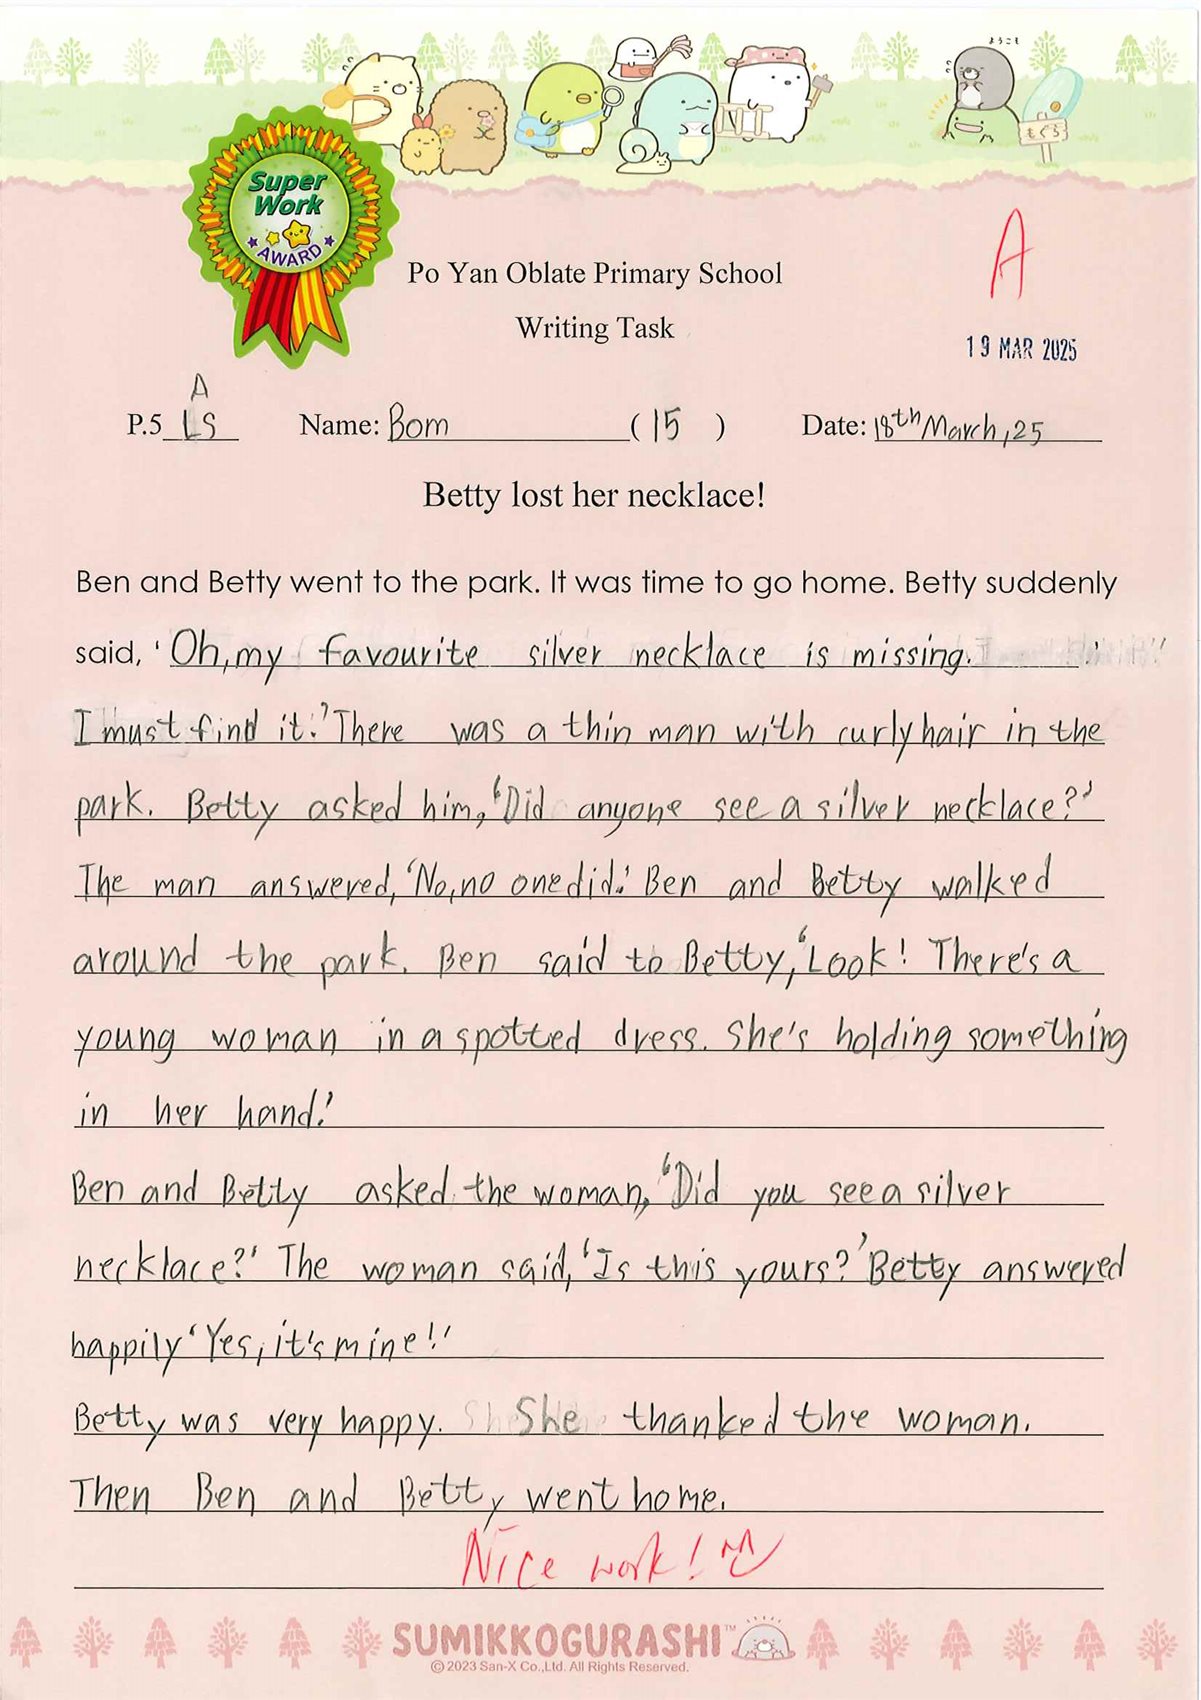 ようこそ
もぐら
Super
Work
AWARD
A
Po Yan Oblate Primary School
Writing Task
19 MAR 2025
A
P.5 LS Name: Bom (15) Date: 18th March, 25
Betty lost her necklace!
Ben and Betty went to the park. It was time to go home. Betty suddenly
said, ‘Oh, my favourite silver necklace is missing.
I must find it.’ There was a thin man with curly hair in the
park. Betty asked him, ‘Did anyone see a silver necklace?’
The man answered, ‘No, no one did.’ Ben and Betty walked
around the park. Ben said to Betty, ‘Look! There's a
young woman in a spotted dress. She's holding something
in her hand.’
Ben and Betty asked the woman, ‘Did you see a silver
necklace?’ The woman said, ‘Is this yours?’ Betty answered
happily ‘Yes, it's mine!’
Betty was very happy. She thanked the woman.
Then Ben and Betty went home.
Nice work!
SUMIKKOGURASHI™
©2023 San-X Co.,Ltd. All Rights Reserved.